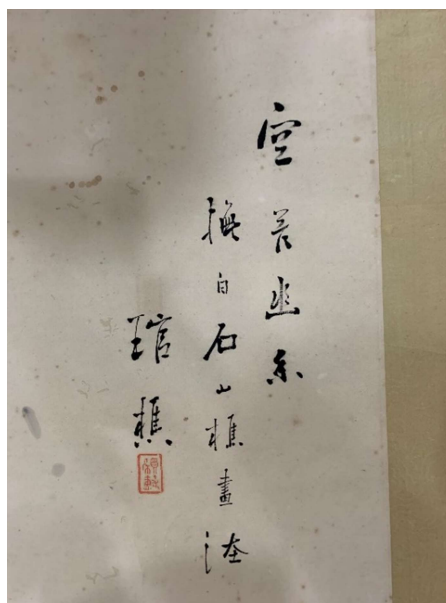 空谷幽香
撫白石山樵畫法
琯樵